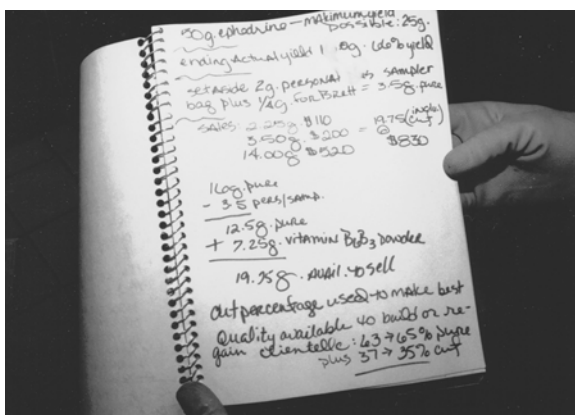 50g. ephedrine — maximum yield
possible: 25g.
ending Actual yield 1 .8g. 66% yield
set aside 2g. personal sampler
bag plus 1/4g. for Brett = 3.5g. pure
SALES: 2.25g. $110
3.50g. $200 = 19.75 (inclg. cut)
14.00g $520 @ $830
16.0g. pure
- 3.5 pers/samp.
12.5g. pure
+ 7.25g. vitamin B6B3 powder
19.75g. AVAIL. to sell
Cut percentage used to make best
Quality available to build or re-
gain clientelle: 63 → 65% pure
plus 37 → 35% cut